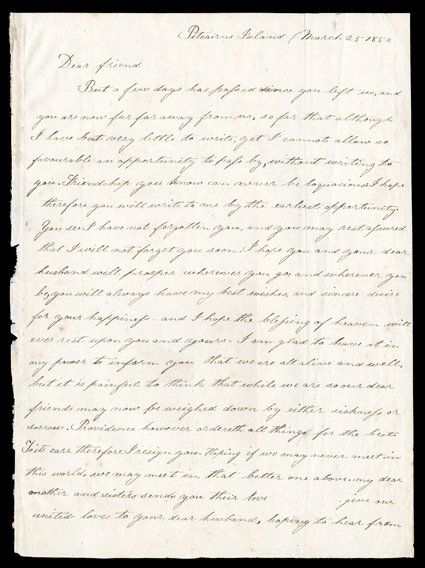 Pitcairns Island March 25 1850
Dear friend
But a few days has passed since you left us, and
you are now far far away from us, so far that although
I have but very little to write, yet I cannot allow so
favourable an opportunity to pass by, without writing to
you. Friendship you know can never be loquacious I hope
therefore you will write to me by the earliest opportunity
You see I have not forgotten you, and you may rest assured
that I will not forget you soon. I hope you and your dear
husband will prosper wherever you go, and wherever you
be, you will always have my best wishes, and sincere desire
for your happiness and I hope the blessing of heaven will
ever rest upon you and yours. I am glad to have it in
my power to inform you that we are all alive and well,
but it is painful to think that while we are so our dear
friends may now be weighed down by either sickness or
sorrow. Providence however ordereth all things for the best.
To its care therefore I resign you. Hoping if we may never meet in
this world, we may meet in that better one above. my dear
mother and sisters sends you their love give our
united loves to your dear husband, hoping to hear from